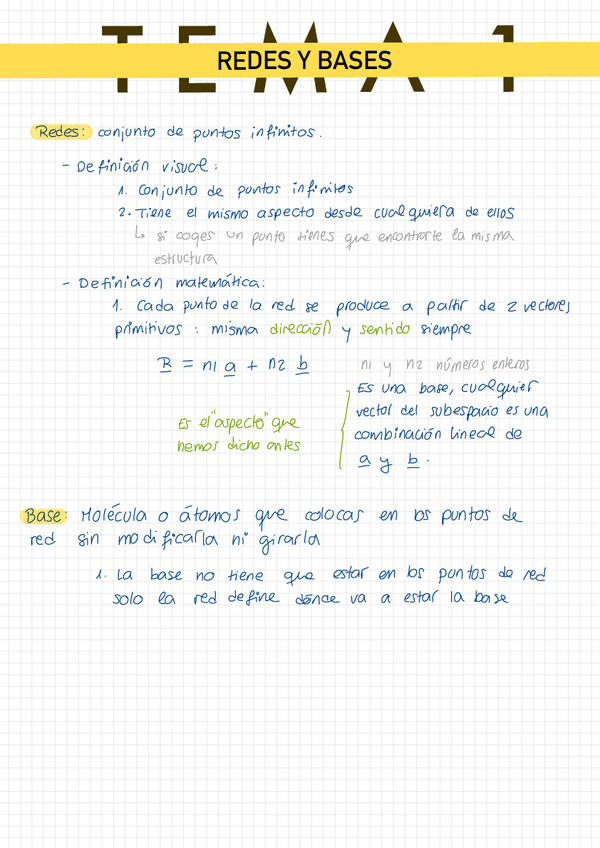 TEMA 1
REDES Y BASES
Redes: conjunto de puntos infinitos.
- Definición visual:
1. Conjunto de puntos infinitos
2. Tiene el mismo aspecto desde cualquiera de ellos
↳ si coges un punto tienes que encontrarte la misma
estructura
- Definición matemática:
1. Cada punto de la red se produce a partir de 2 vectores
primitivos : misma dirección y sentido siempre
R = n1 a + n2 b
n1 y n2 números enteros
Es el "aspecto" que
hemos dicho antes
Es una base, cualquier
vector del subespacio es una
combinación lineal de
a y b.
Base: Molécula o átomos que colocas en los puntos de
red sin modificarla ni girarla
1. La base no tiene que estar en los puntos de red
solo la red define dónde va a estar la base